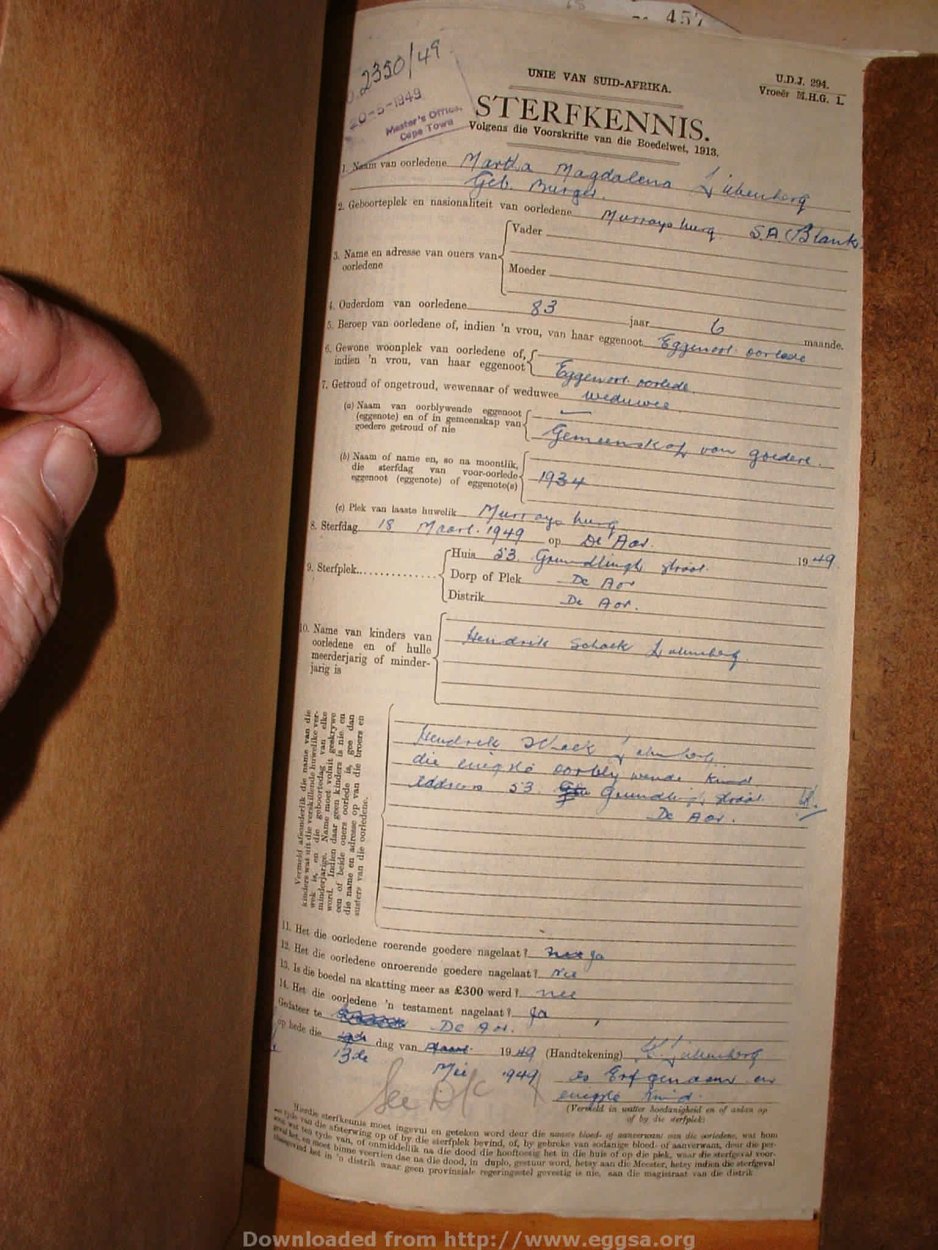 457
2350/49
20-5-1949
Master's Office,
Cape Town
UNIE VAN SUID-AFRIKA.
U.D.J. 294.
Vroeër M.H.G. 1.
STERFKENNIS.
Volgens die Voorskrifte van die Boedelwet, 1913.
1. Naam van oorledene Martha Magdalena Liebenberg
Geb. Burger.
2. Geboorteplek en nasionaliteit van oorledene Murraysburg S.A. (Blank)
3. Name en adresse van ouers van oorledene
Vader
Moeder
4. Ouderdom van oorledene 83 jaar 6 maande.
5. Beroep van oorledene of, indien 'n vrou, van haar eggenoot Eggenoot oorlede
6. Gewone woonplek van oorledene of,
indien 'n vrou, van haar eggenoot Eggenoot oorlede.
7. Getroud of ongetroud, wewenaar of weduwee weduwee
(a) Naam van oorblywende eggenoot
(eggenote) en of in gemeenskap van
goedere getroud of nie Gemeenskap van goedere.
(b) Naam of name en, so na moontlik,
die sterfdag van voor-oorlede
eggenoot (eggenote) of eggenote(s) 1934
(c) Plek van laaste huwelik Murraysburg
8. Sterfdag 18 Maart. 1949 op De Aar. 1949
9. Sterfplek
Huis 53. Grundlingh straat.
Dorp of Plek De Aar
Distrik De Aar.
10. Name van kinders van
oorledene en of hulle
meerderjarig of minder-
jarig is
Hendrik Schalk Liebenberg.
Vermeld afsonderlik die name van die
kinders wat uit die verskillende huwelike ver-
wek is, en die geboortedag van elke
minderjarige. Name moet voluit geskrywe
word. Indien daar geen kinders is nie, en
een of beide ouers oorlede is, gee dan
die name en adresse op van die broers en
susters van die oorledene.
Hendrik Schalk Liebenberg
die enigste oorblywende kind
address 53 Grundlingh straat
De Aar.
11. Het die oorledene roerende goedere nagelaat? ja
12. Het die oorledene onroerende goedere nagelaat? Nee
13. Is die boedel na skatting meer as £300 werd? nee
14. Het die oorledene 'n testament nagelaat? Ja
Gedateer te De Aar.
op hede die dag van 1949 (Handtekening) Liebenberg
13de Mei 1949 as Erfgenaam en
enigste kind.
(Vermeld in watter hoedanigheid en of aldan op
of by die sterfplek)
Hierdie sterfkennis moet ingevul en geteken word deur die naaste bloed- of aanverwant van die oorledene, wat
ten tyde van die afsterwing op of by die sterfplek bevind, of, by gebreke van sodanige bloed- of aanverwant, deur die
wat ten tyde van, of onmiddellik na die dood die hooftoesig het in die huis of op die plek, waar die sterfgeval voor-
geval het, en moet binne veertien dae na die dood, in duplo, gestuur word, hetsy aan die Meester, hetsy indien die sterfgeval
het in 'n distrik waar geen provinsiale regeringsetel gevestig is nie, aan die magistraat van die distrik
Downloaded from http://www.eggsa.org